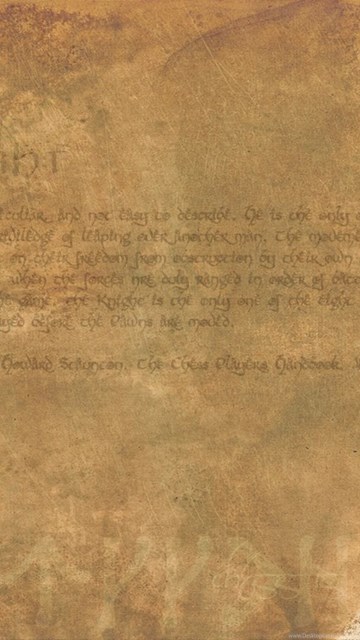 culiar, and not easy to describe. He is the only
of leaping over another man. The moveme
on their freedom from obstruction by their own
when the forces are duly ranged in order of batt
game, the Knight is the only one of the eight
yed before the Pawns are moved.
Howard Staunton, The Chess Players Handbook,